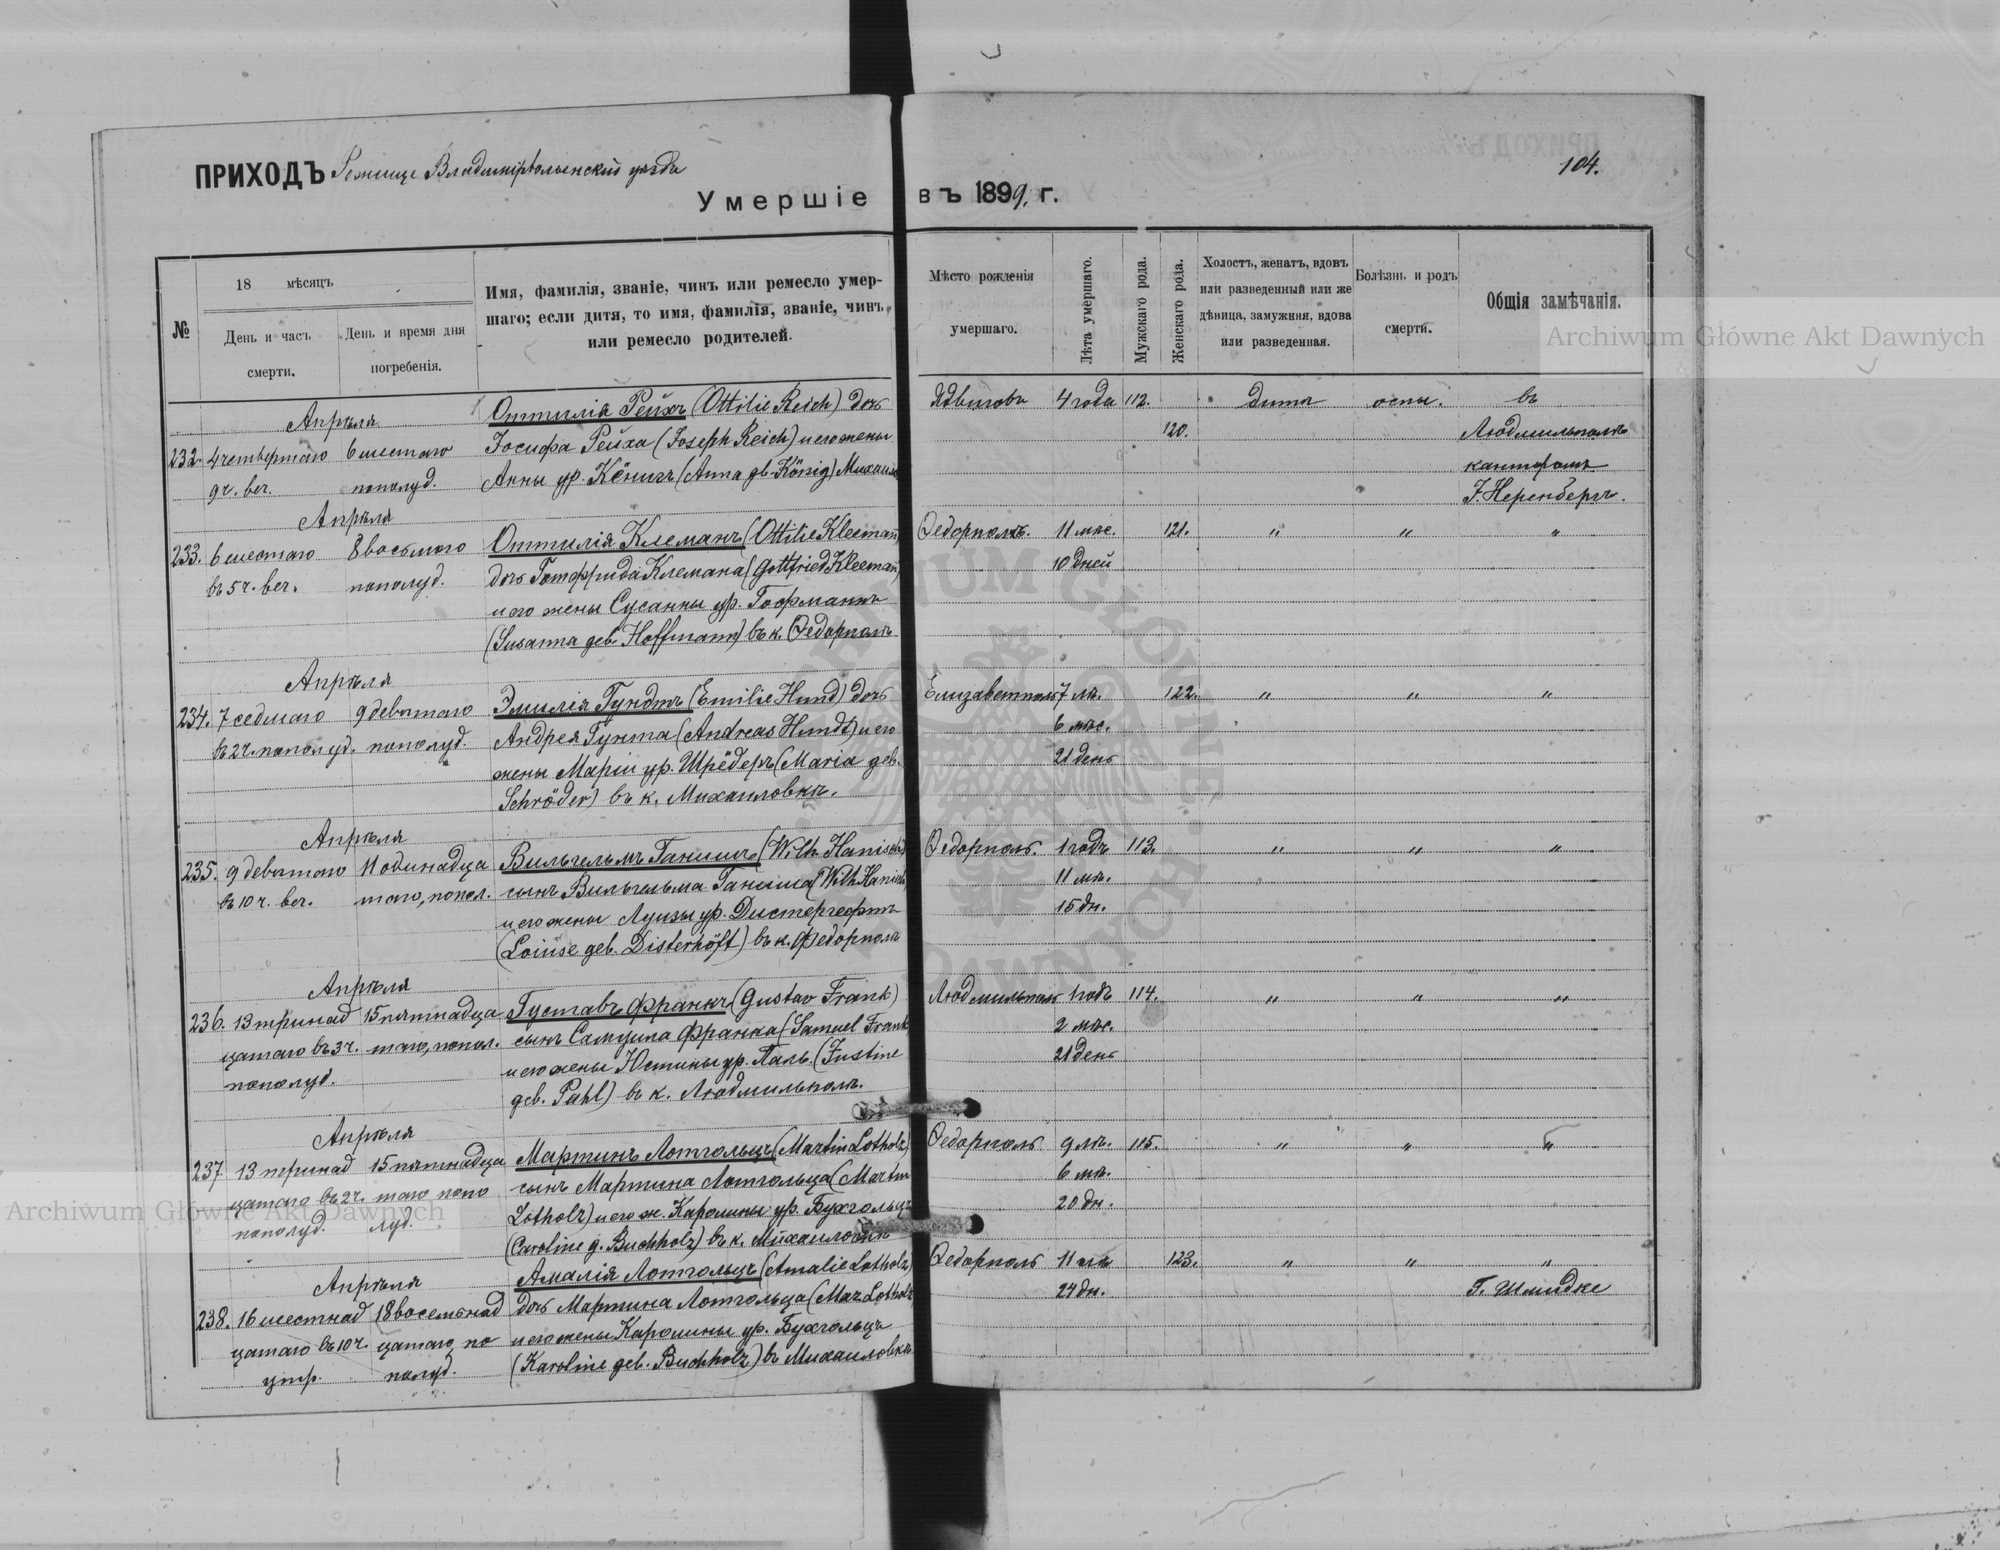 ПРИХОДЪ Рожище Владимірволынскій уѣздъ
104.
Умершіе въ 1899. г.
№
18 мѣсяцъ
День и часъ смерти.
День и время дня погребенія.
Имя, фамилія, званіе, чинъ или ремесло умер-
шаго; если дитя, то имя, фамилія, званіе, чинъ,
или ремесло родителей.
Мѣсто рожденія
умершаго.
Лѣта умершаго.
Мужскаго рода.
Женскаго рода.
Холостъ, женатъ, вдовъ
или разведенный или же
дѣвица, замужняя, вдова
или разведенная.
Болѣзнь и родъ
смерти.
Общія замѣчанія.
Archiwum Główne Akt Dawnych
Апрѣля Оттилія Рейхъ (Ottilie Reich) дочь Ядвигова 4 года 112. дитя оспы. въ
232. 4 четвертаго 6 шестаго Іосифа Рейха (Joseph Reich) и его жены 120. Людмильполѣ
9 ч. веч. пополуд. Анны ур. Кёнигъ (Anna geb. König) канторомъ
Апрѣля І. Неренбергъ.
233. 6 шестаго 8 восьмого Оттилія Клеманъ (Ottilie Kleeman) Федорполь. 11 мѣс. 121. " " "
въ 5 ч. веч. пополуд. дочь Готфрида Клемана (Gottfried Kleeman) 10 дней
и его жены Сусанны ур. Гофманнъ
(Susanna geb. Hoffmann) въ к. Федорполь
Апрѣля
234. 7 седмаго 9 девятаго Эмилія Гундтъ (Emilie Hund) дочь Елизаветполь 7 лѣ. 122. " " "
въ 2 ч. пополуд. пополуд. Андрея Гунта (Andreas Hundt) и его 6 мѣс.
жены Маріи ур. Шрёдеръ (Maria geb. 21 день
Schröder) въ к. Михаиловкѣ.
Апрѣля
235. 9 девятаго 11 одинадца Вильгельмъ Ганишъ (Wilh. Hanisch) Федорполь. 1 годъ 113. " " "
въ 10 ч. веч. таго, попол. сынъ Вильгельма Ганиша (Wilh. Hanisch 11 мѣ.
и его жены Луизы ур. Дистергефтъ 15 дн.
(Loiuse geb. Disterhöft) въ к. Федорполь
Апрѣля
236. 13 тринад 15 пятнадца Густавъ Франкъ (Gustav Frank) Людмильполь 1 годъ 114. " " "
цатаго въ 3 ч. таго, попол. сынъ Самуила Франка (Samuel Frank 2 мѣс.
пополуд. и его жены Юстины ур. Паль. (Justine 21 день
geb. Pahl) въ к. Людмильполь.
Апрѣля
237 13 тринад 15 пятнадца Мартинъ Лотгольцъ (Martin Lotholz) Федорполь 9 лѣ. 115. " " "
цатаго въ 2 ч. таго попо сынъ Мартина Лотгольца (Martin 6 мѣ.
пополуд. луд. Lotholz) и его ж. Каролины ур. Бухгольцъ 20 дн.
(Caroline g. Buchholz) въ к. Михаиловкѣ
Апрѣля Амалія Лотгольцъ (Amalie Lotholz) Федорполь 11 мѣ 123. " " "
238. 16 шестнад 18 восемьнад дочь Мартина Лотгольца (Mar. Lotholz) 24 дн. Г. Шмидке
цатаго въ 10 ч. цатаго по и его жены Каролины ур. Бухгольцъ
утр. полуд. (Karoline geb. Buchholz) въ Михаиловкѣ
Archiwum Główne Akt Dawnych